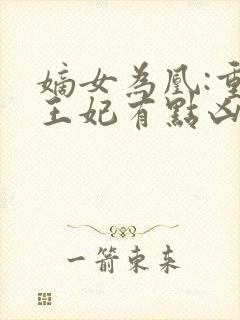 嫡女為凰:重
王妃有點凶
一箭東來